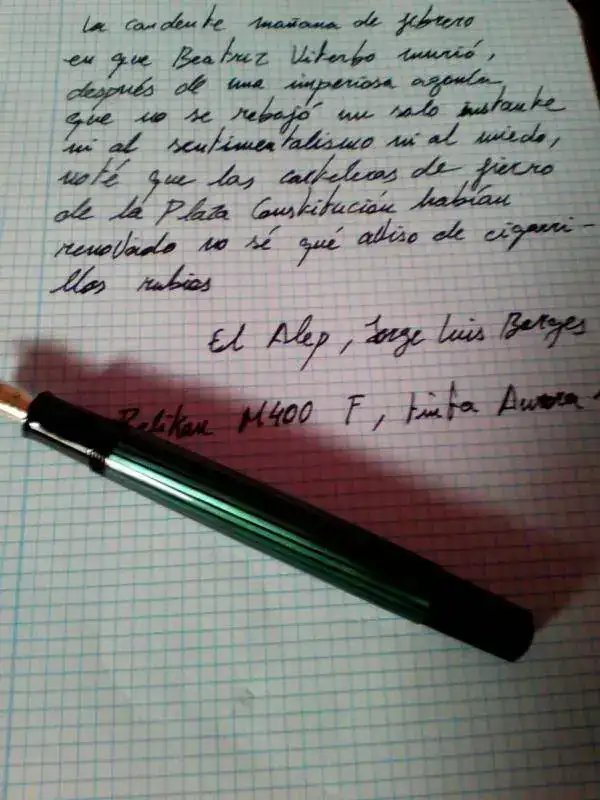 La candente mañana de febrero
en que Beatriz Viterbo murió,
después de una imperiosa agonía
que no se rebajó un solo instante
ni al sentimentalismo ni al miedo,
noté que las carteleras de fierro
de la Plaza Constitución habían
renovado no sé qué aviso de cigarri-
llos rubios
El Alep, Jorge Luis Borges
Pelikan M400 F, tinta Aurora